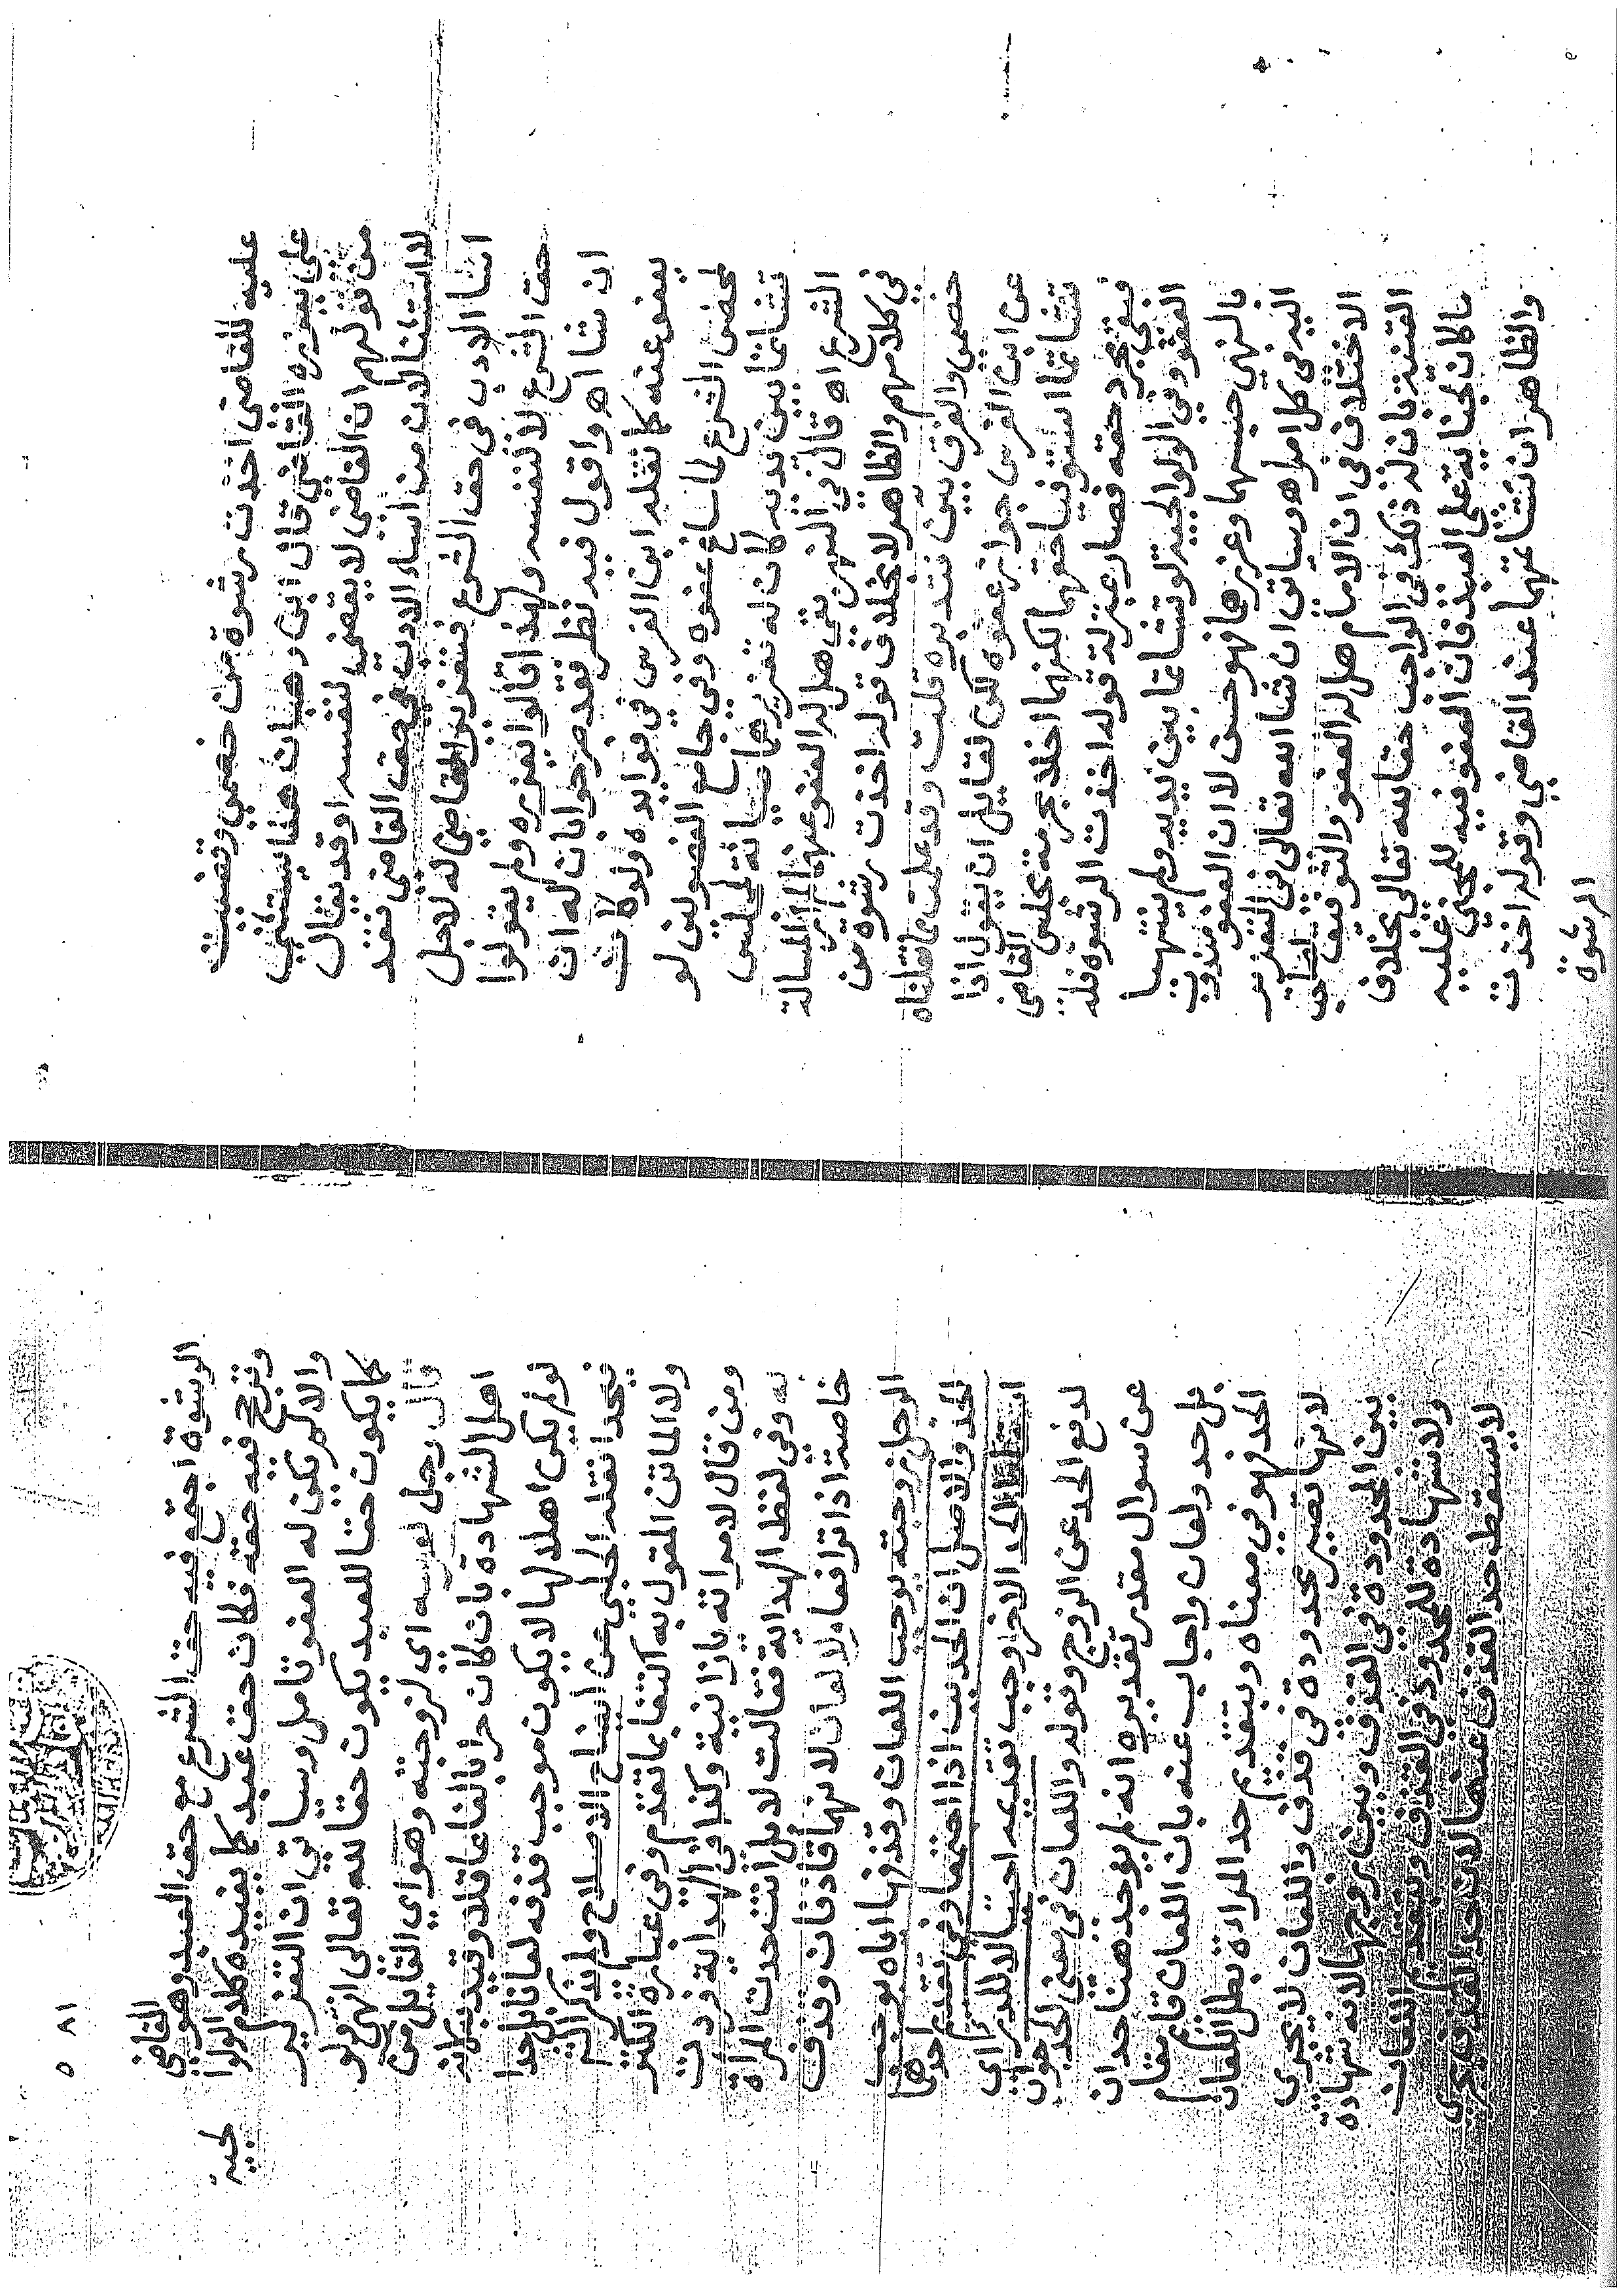 عليه للقاضي اخذت رشوة من خصمي وقضيت
على بعزره القاضي قال ابن وهبان هذا يستثنى
من قولهم ان القاضي لا يقضي لنفسه او قد يقال
لا استثنا لان من اساء الادب في حق القاضي فقد
اسا الادب في حق الشرع فتعزير القاضي له لاجل
حق الشرع لا لنفسه ولهذا قالوا يعزره ولم يقولوا
ان شا اه واقول فيه نظر فقد صرحوا بان له ان
يعفو عنه كما نقله ابن الغرس في فوايده ولو كان
لمحض الشرع لما ساغ عفوه وفي جامع الفصولين لو
تشاتما بين يديه كان له تعزيرهما صيانة لمجلس
الشرع اه قال في النهر بقي هل له العفو عنهما لم ار المسالة
في كلامهم والظاهر لا بخلاف قوله اخذت رشوة من
خصمي والفرق بين فتدبره قلت وقد علمت ما نقلناه
عن ابن الغرس جواز عفوه لكن لقايل ان يقول اذا
تشاتما استوفيا حقهما لكنهما اخلا بحرمة مجلس القاضي
فبقي مجرد حقه فصار بمنزلة قوله اخذت الرشوة فله
العفو وفي الولوالجية لو تشاتما بين يديه ولم ينتهيا
بالنهي حبسهما وعزرهما فهو حسن لان العفو مندوب
اليه في كل امر اه وسياتي ان شا الله تعالى في التعزير
الاختلاف في ان الامام هل له العفو والتوفيق لصاحب
القنية بان له ذلك في الواجب حقا لله تعالى بخلاف
ما كان لجناية على العبد فان العفو فيه للمجني عليه
والظاهر ان تشاتمهما عند القاضي وقوله اخذت
الرشوة
٨١
الرشوة اجتمع فيه حق الشرع مع حق العبد وهو القاضي
وترجح فيه حقه فكان حق عبد كما يفيده كلام الولوا
لجية
والا لم يكن له العفو تامل وسياتي ان التعزير
كما يكون حقا للعبد يكون حقا لله تعالى انتهى ولو
قال رجل لعرسه اي لزوجته وهو اي القايل من
اهل الشهادة بان كان حرا بالغا عاقلا وقيد بكونه
لو لم يكن اهلا لها لا يكون موجب قذفه لعانا بل حدا
فيحد انقله الحلبي عن ايضاح الاصلاح ولم يذكر الشم
ولا الماتن المقول به اكتفا بما تقدم وفي عبارة الكنز
ومن قال لامراته يا زانية وكذا في الهداية فردت
به وفي لفظ الهداية فقالت لا بل انت حدت المراة
خاصة اذا ترافعا ولا لعان لانهما قاذفان وقذف
الرجل زوجته يوجب اللعان وقذفها اياه يوجب
الحد والاصل ان الحدين اذا اجتمعا وفي تقديم احدهما
اسقاط الحد الاخر وجب تقديمه احتيالا للدرء اي
لدفع الحد عن الزوج وقوله واللعان في معنى الحد جواب
عن سوال مقدر تقديره انه لم يوجد هنا حدان
بل حد ولعان واجاب عنه بان اللعان قايم مقام
الحد فهو في معناه وبتقديم حد المراة بطل اللعان
لانها تصير محدودة في قذف واللعان لا يجري
بين المحدودة في القذف وبين زوجها لانه شهادة
ولا شهادة للمحدود في القذف وبتقديم اللعان
لا يسقط حد القذف عنها لان حد القذف يجري